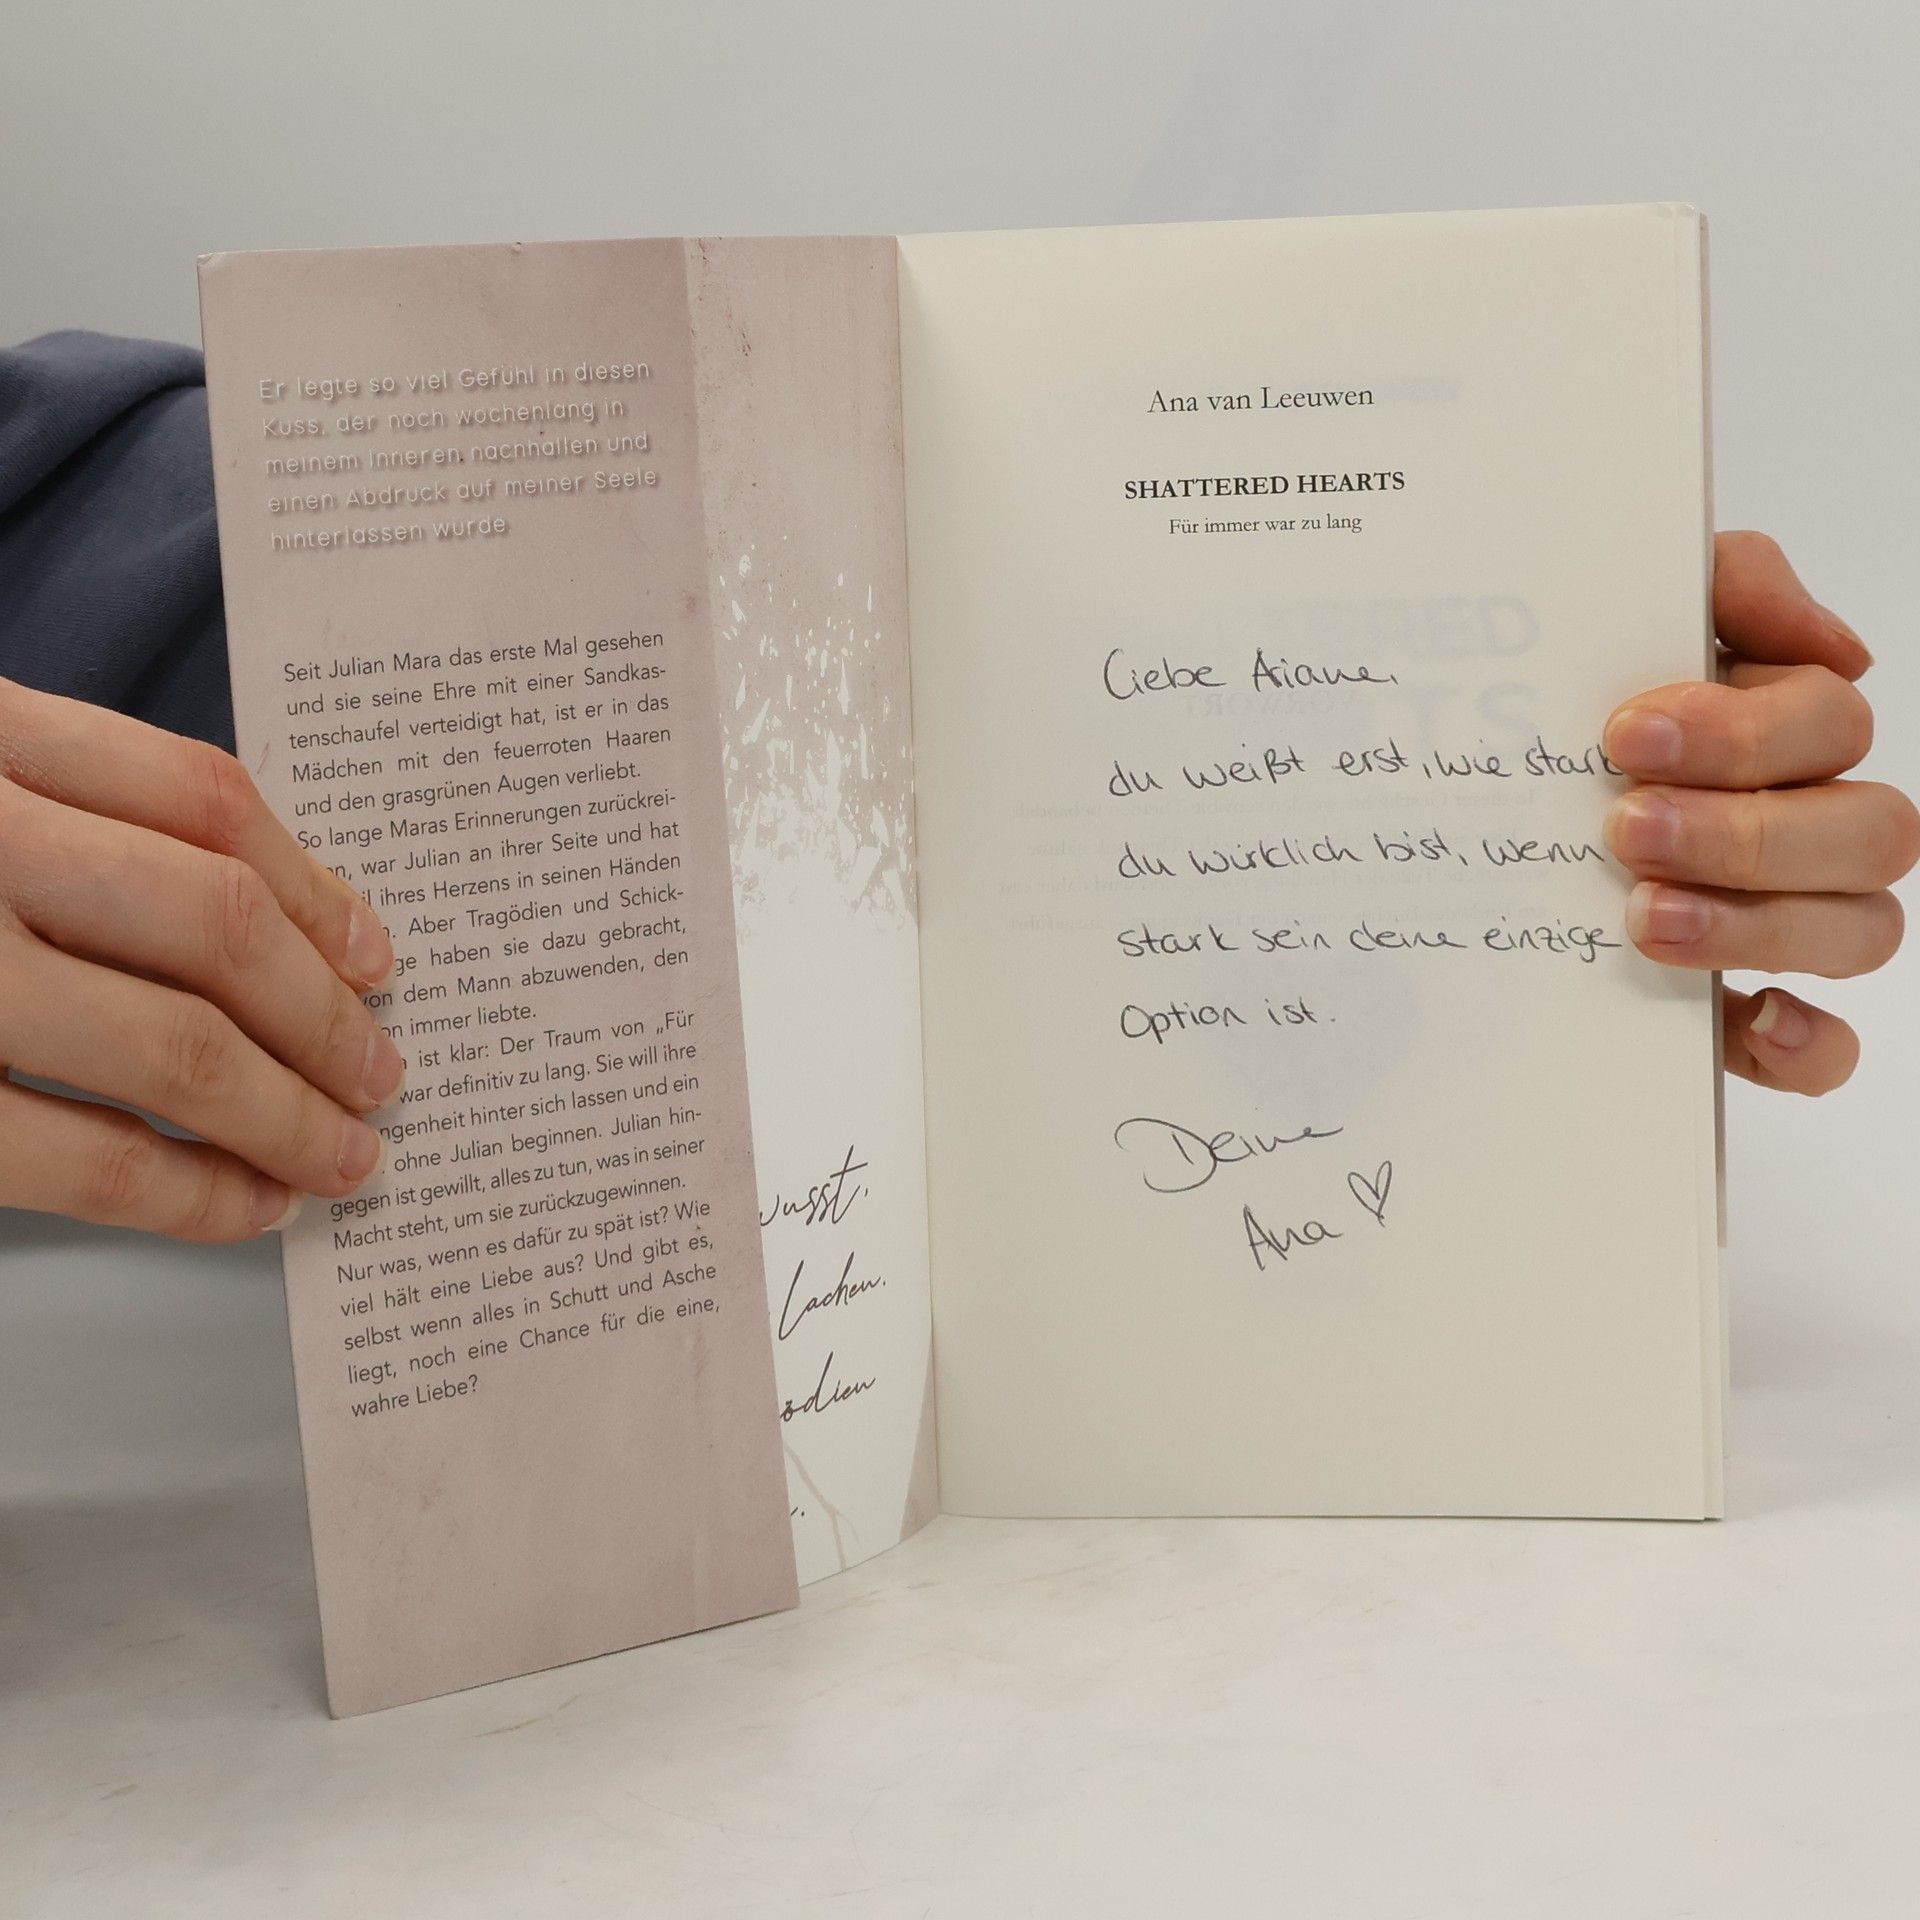 Er legte so viel Gefühl in diesen
Kuss, der noch wochenlang in
meinem Inneren nachhallen und
einen Abdruck auf meiner Seele
hinterlassen würde.
Seit Julian Mara das erste Mal gesehen
und sie seine Ehre mit einer Sandkas-
tenschaufel verteidigt hat, ist er in das
Mädchen mit den feuerroten Haaren
und den grasgrünen Augen verliebt.
So lange Maras Erinnerungen zurückrei-
war Julian an ihrer Seite und hat
ihres Herzens in seinen Händen
Aber Tragödien und Schick-
haben sie dazu gebracht,
von dem Mann abzuwenden, den
immer liebte.
ist klar: Der Traum von „Für
war definitiv zu lang. Sie will ihre
ngenheit hinter sich lassen und ein
ohne Julian beginnen. Julian hin-
gegen ist gewillt, alles zu tun, was in seiner
Macht steht, um sie zurückzugewinnen.
Nur was, wenn es dafür zu spät ist? Wie
viel hält eine Liebe aus? Und gibt es,
selbst wenn alles in Schutt und Asche
liegt, noch eine Chance für die eine,
wahre Liebe?
wusst,
Lachen.
ödien
Ana van Leeuwen
SHATTERED HEARTS
Für immer war zu lang
Liebe Ariane,
du weißt erst, wie stark
du wirklich bist, wenn
stark sein deine einzige
Option ist.
Deine
Ana ♡